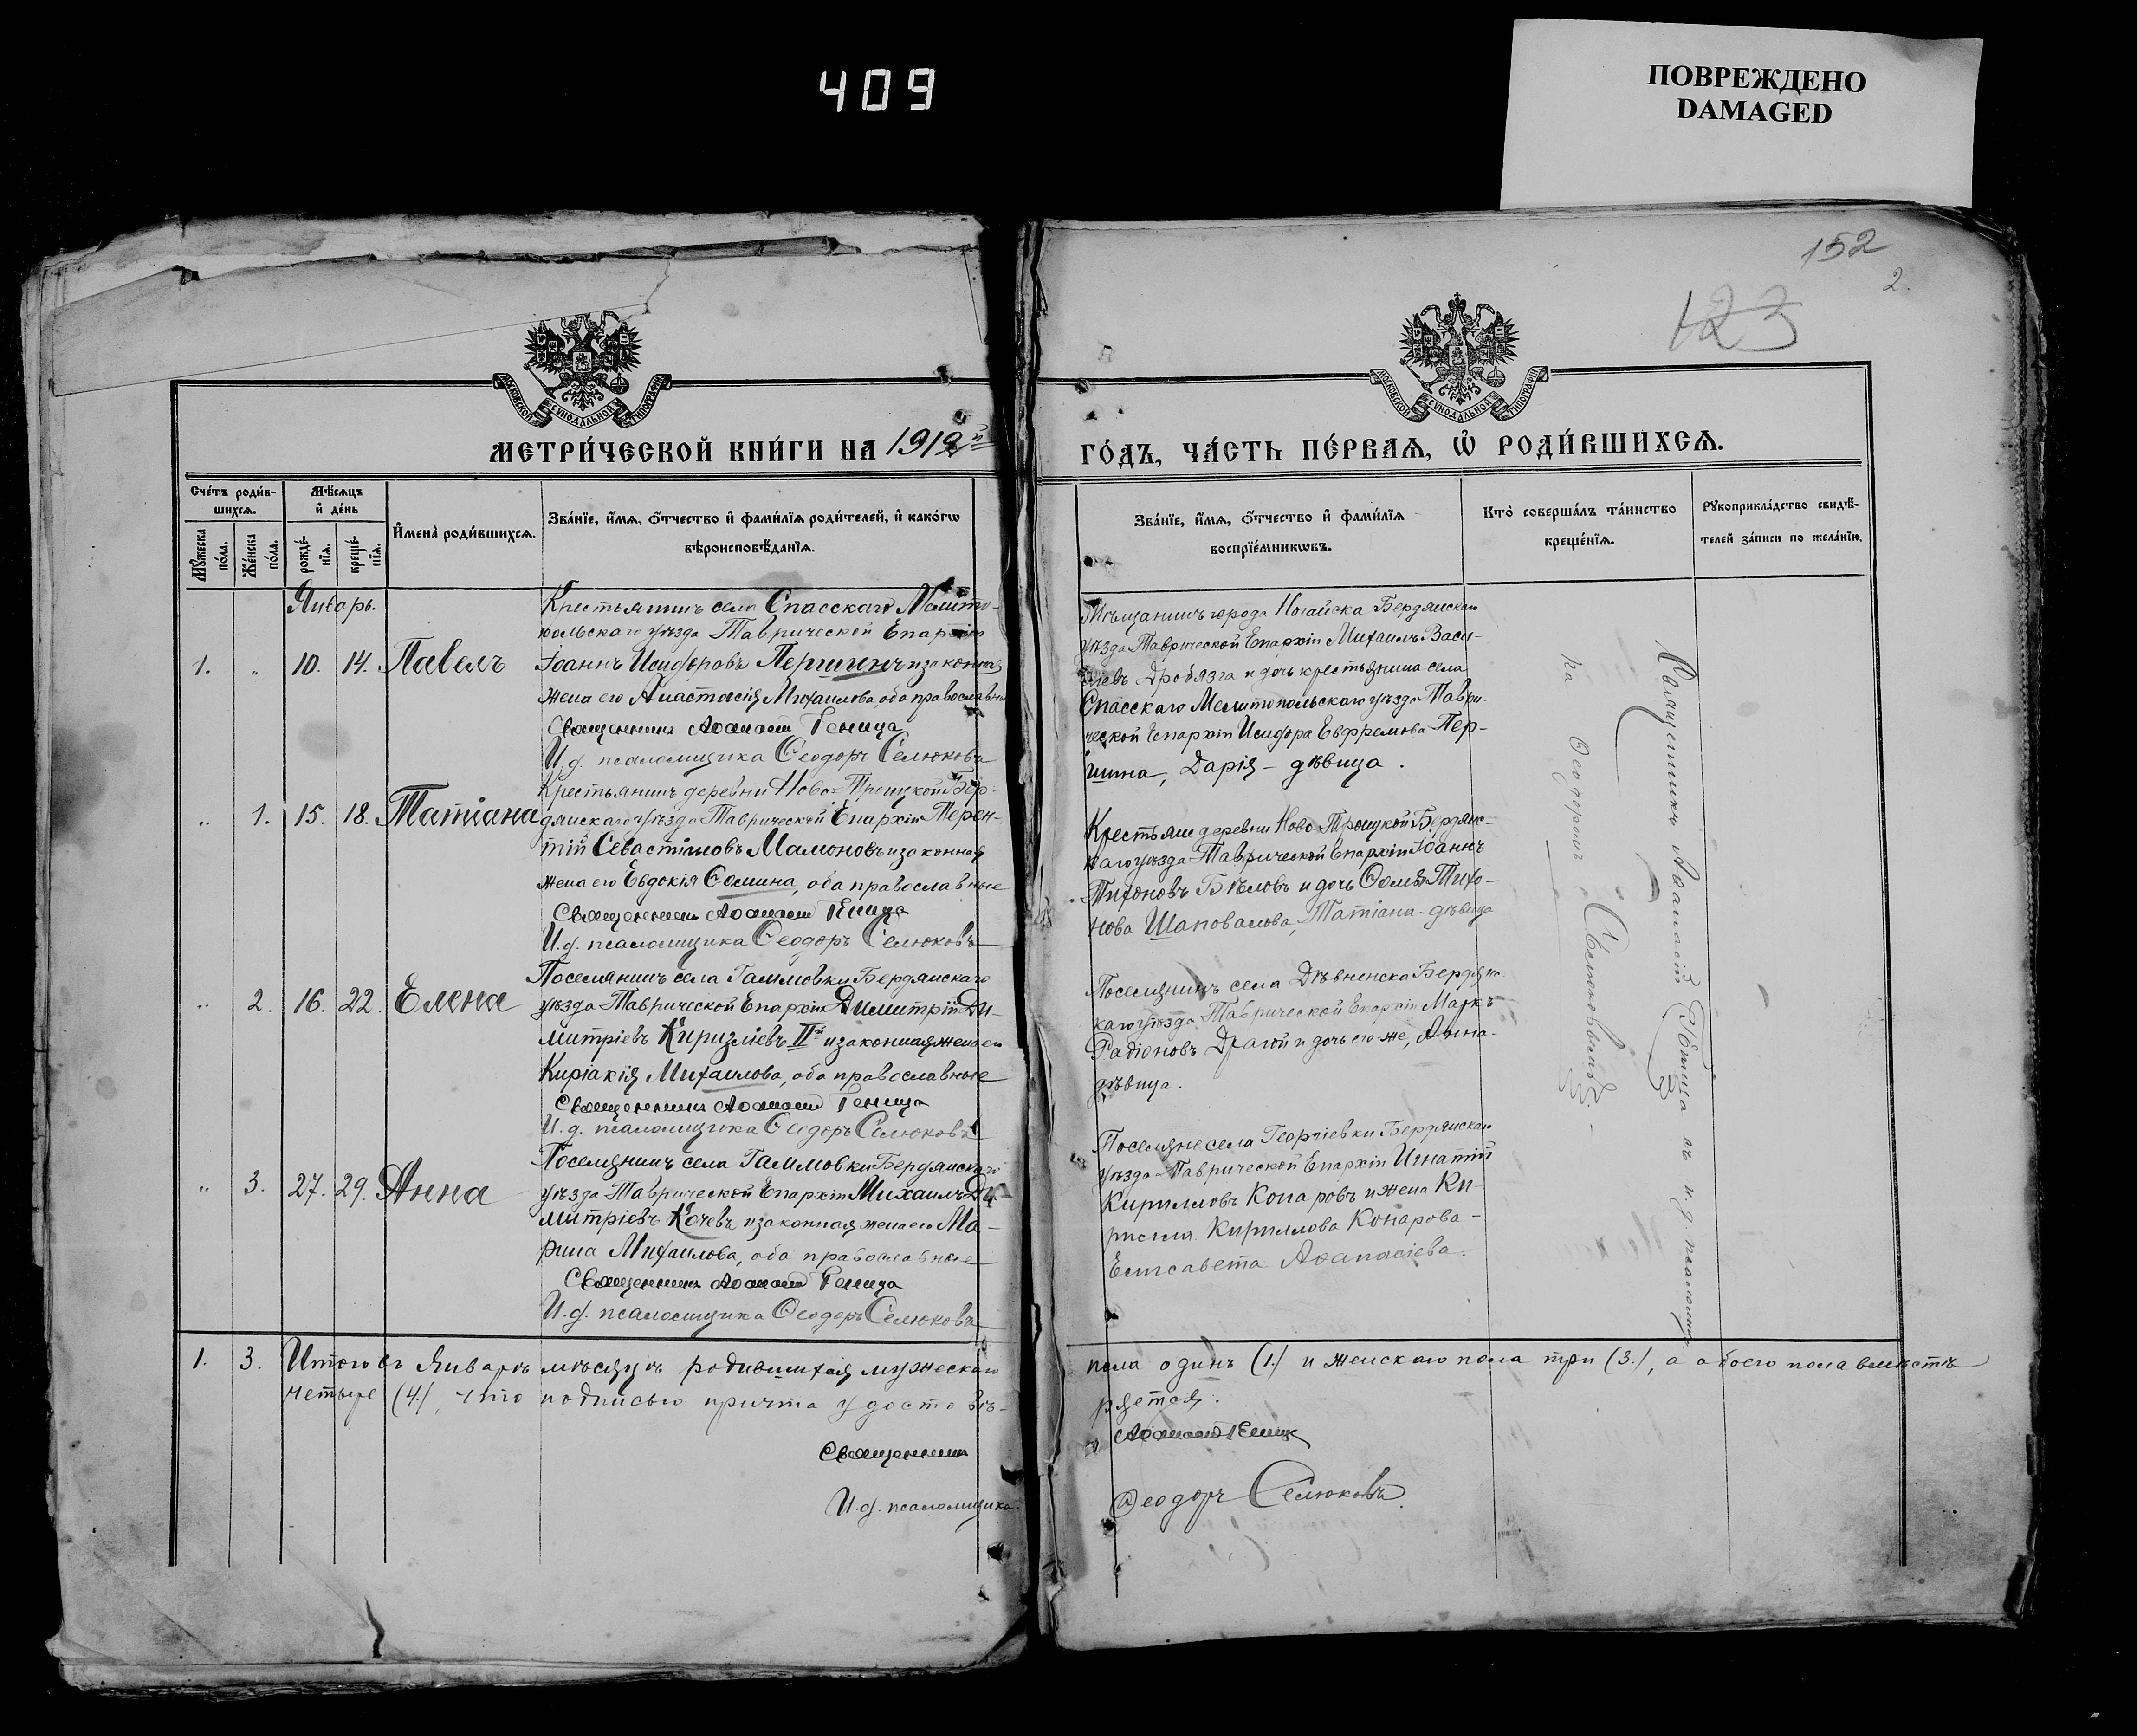 409
ПОВРЕЖДЕНО
DAMAGED
152
2.
123
МОСКОВСКОЙ СУНОДАЛЬНОЙ ТИПОГРАФІИ
МОСКОВСКОЙ СУНОДАЛЬНОЙ ТИПОГРАФІИ
МЕТРИ́ЧЕСКОЙ КНИ́ГИ НА 1912й
ГО́ДЪ, ЧА́СТЬ ПЕ́РВАѦ, Ѡ҆ РОДИ́ВШИХСѦ.
Сче́тъ роди́в-
шихсѧ.
Мꙋ́жеска по́ла.
Же́нска по́ла.
Мѣ́сѧцъ
и҆ де́нь
рожде́-
нїѧ.
креще́-
нїѧ.
И҆мена̀ роди́вшихсѧ.
Зва́нїе, и҆́мѧ, ѻ҆́тчество и҆ фами́лїѧ роди́телей, и҆ како́гѡ
вѣроисповѣ́данїѧ.
Зва́нїе, и҆́мѧ, ѻ҆́тчество и҆ фами́лїѧ
воспрїе́мникѡвъ.
Кто̀ соверша́лъ та́инство
креще́нїѧ.
Рꙋкоприкла́дство свидѣ́-
телей за́писи по жела́нїю.
Январь.
1. „ 10. 14. Павелъ
Крестьянинъ села Спасскаго Мелито-
польскаго уѣзда Таврической Епархіи
Іоаннъ Исидоровъ Першинъ и законная
жена его Анастасія Михаилова, оба православные
Священникъ Аѳанасій Геница
И. д. псаломщика Ѳеодоръ Селюковъ
Мѣщанинъ города Ногайска Бердянскаго
уѣзда Таврической Епархіи Михаилъ Васи-
ліевъ Дробязга и дочь крестьянина села
Спасскаго Мелитопольскаго уѣзда Таври-
ческой Епархіи Исидора Евфремова Пер-
шина, Дарія - дѣвица.
„ 1. 15. 18. Татіана
Крестьянинъ деревни Ново-Троицкой Бер-
дянскаго уѣзда Таврической Епархіи Терен-
тій Севастіановъ Мамоновъ и законная
жена его Евдокія Ѳомина, оба православные
Священникъ Аѳанасій Геница
И. д. псаломщика Ѳеодоръ Селюковъ
Крестьяне деревни Ново-Троицкой Бердянс-
каго уѣзда Таврической Епархіи Іоаннъ
Тихоновъ Бѣловъ и дочь Ѳомы Тихо-
нова Шаповалова, Татіана - дѣвица
„ 2. 16. 22. Елена
Поселянинъ села Гаммовки Бердянскаго
уѣзда Таврической Епархіи Димитрій Ди-
митріевъ Киризліевъ IIй и законная жена его
Киріакія Михаилова, оба православные
Священникъ Аѳанасій Геница
И. д. псаломщика Ѳеодоръ Селюковъ
Поселянинъ села Дѣвненска Бердянс-
каго уѣзда Таврической Епархіи Маркъ
Радіоновъ Драгой и дочь его-же, Анна -
дѣвица.
„ 3. 27. 29. Анна
Поселянинъ села Гаммовки Бердянскаго
уѣзда Таврической Епархіи Михаилъ Ди-
митріевъ Кочевъ и законная жена его Ма-
рина Михаилова, оба православные
Священникъ Аѳанасій Геница
И. д. псаломщика Ѳеодоръ Селюковъ
Поселяне села Георгіевки Бердянскаго
уѣзда Таврической Епархіи Игнатій
Кирилловъ Копаровъ и жена Ки-
Кириллова Копарова -
Елисавета Аѳанасіева.
Священникъ Аѳанасій Геница съ и. д. псаломщи-
ка Ѳеодоромъ Селюковымъ.
1. 3. Итого въ Январѣ мѣсяцѣ родившихся мужескаго пола одинъ (1.) и женскаго пола три (3.), а обоего пола вмѣстѣ
четыре (4.), что подписью причта удостовѣ-ряется.
Священникъ Аѳанасій Геница
И. д. псаломщика Ѳеодоръ Селюковъ.